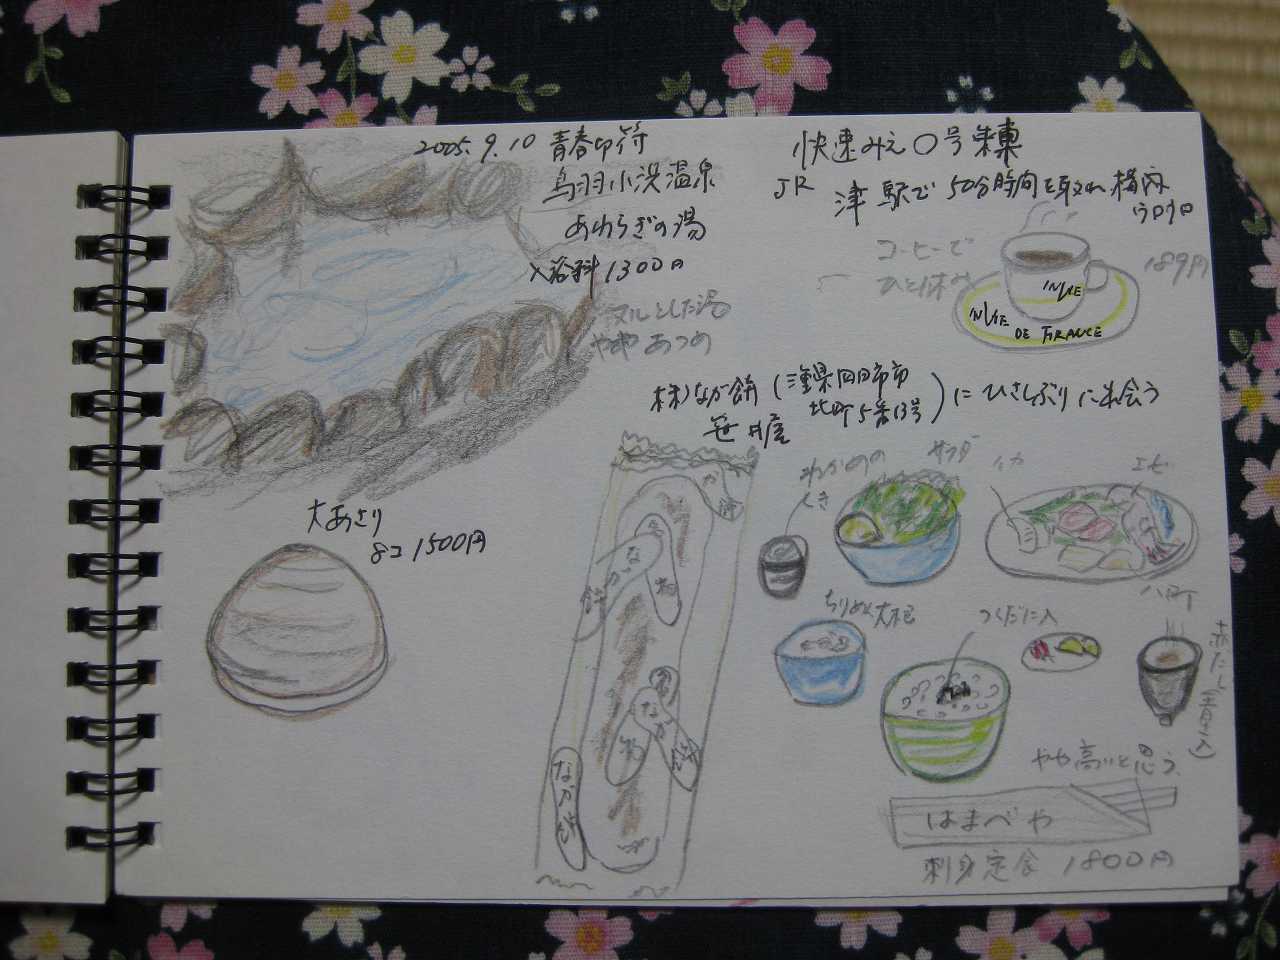 2005.9.10 青春切符
鳥羽小浜温泉
あわらぎの湯
入浴料 1300円
ヌルとした湯
ややあつめ
大あさり
8コ 1500円
快速みえ〇号
JR 津駅で50分時間を 構内
189円
コーヒーで
ひと休み
VIE
VIE
DE FRANCE
株)なが餅(三重県四日市市
北町5番13号)にひさしぶりに出会う
笹井屋
なが
餅
なが
なが餅
わかめの
くき
サラダ
イカ
エビ
ハマチ
ちりめん大根
つくだに入
赤だし
やや高いと思う
はまべや
刺身定食 1800円